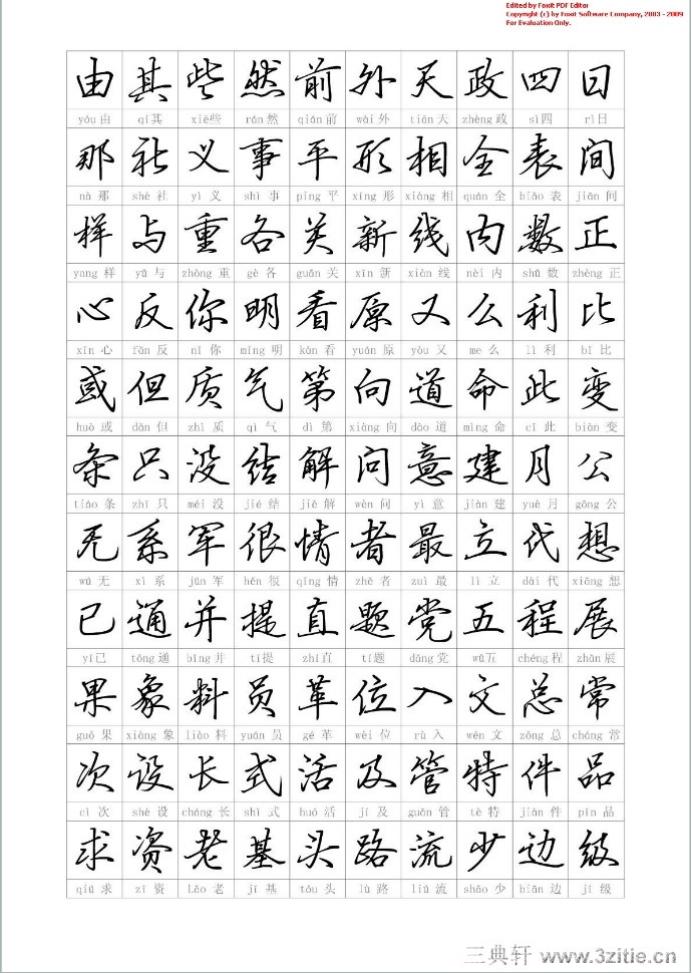 Edited by Foxit PDF Editor
Copyright (c) by Foxit Software Company, 2003 - 2009
For Evaluation Only.
由其些然前外天政四日
yóu 由 qí其 xiē些 rán 然 qián 前 wài 外 tiān 天 zhèng 政 sì四 rì日
那社义事平形相全表间
nà 那 shè 社 yì 义 shì 事 píng 平 xíng 形 xiàng 相 quán 全 biǎo 表 jiān 间
样与重各关新线内数正
yang 样 yǔ 与 zhòng 重 gè 各 guān 关 xīn 新 xiàn 线 nèi 内 shǔ 数 zhèng 正
心反你明看原又么利比
xīn 心 fǎn 反 nǐ 你 míng 明 kàn 看 yuán 原 yòu 又 me 么 lì 利 bǐ 比
或但质气第向道命此变
huò 或 dàn 但 zhì 质 qì 气 dì 第 xiàng 向 dào 道 mìng 命 cǐ 此 biàn 变
条只没结解问意建月公
tiáo 条 zhǐ 只 méi 没 jié 结 jiě 解 wèn 问 yì 意 jiàn 建 yuè 月 gōng 公
无系军很情者最立代想
wú 无 xì 系 jūn 军 hěn 很 qíng 情 zhě 者 zuì 最 lì 立 dài 代 xiǎng 想
已通并提直题党五程展
yǐ已 tōng 通 bìng 并 tí提 zhí直 tí题 dǎng 党 wǔ五 chéng 程 zhǎn 展
果象料员革位入文总常
guǒ 果 xiàng 象 liào 料 yuán 员 gé 革 wèi 位 rù 入 wén 文 zǒng 总 cháng 常
次设长式活及管特件品
cì 次 shè 设 cháng 长 shì 式 huó 活 jí 及 guǎn 管 tè 特 jiàn 件 pǐn 品
求资老基头路流少边级
qiú 求 zī 资 Lǎo 老 jī 基 tóu 头 lù 路 liú 流 shǎo 少 biān 边 jí 级
三典轩 www.3zitie.cn